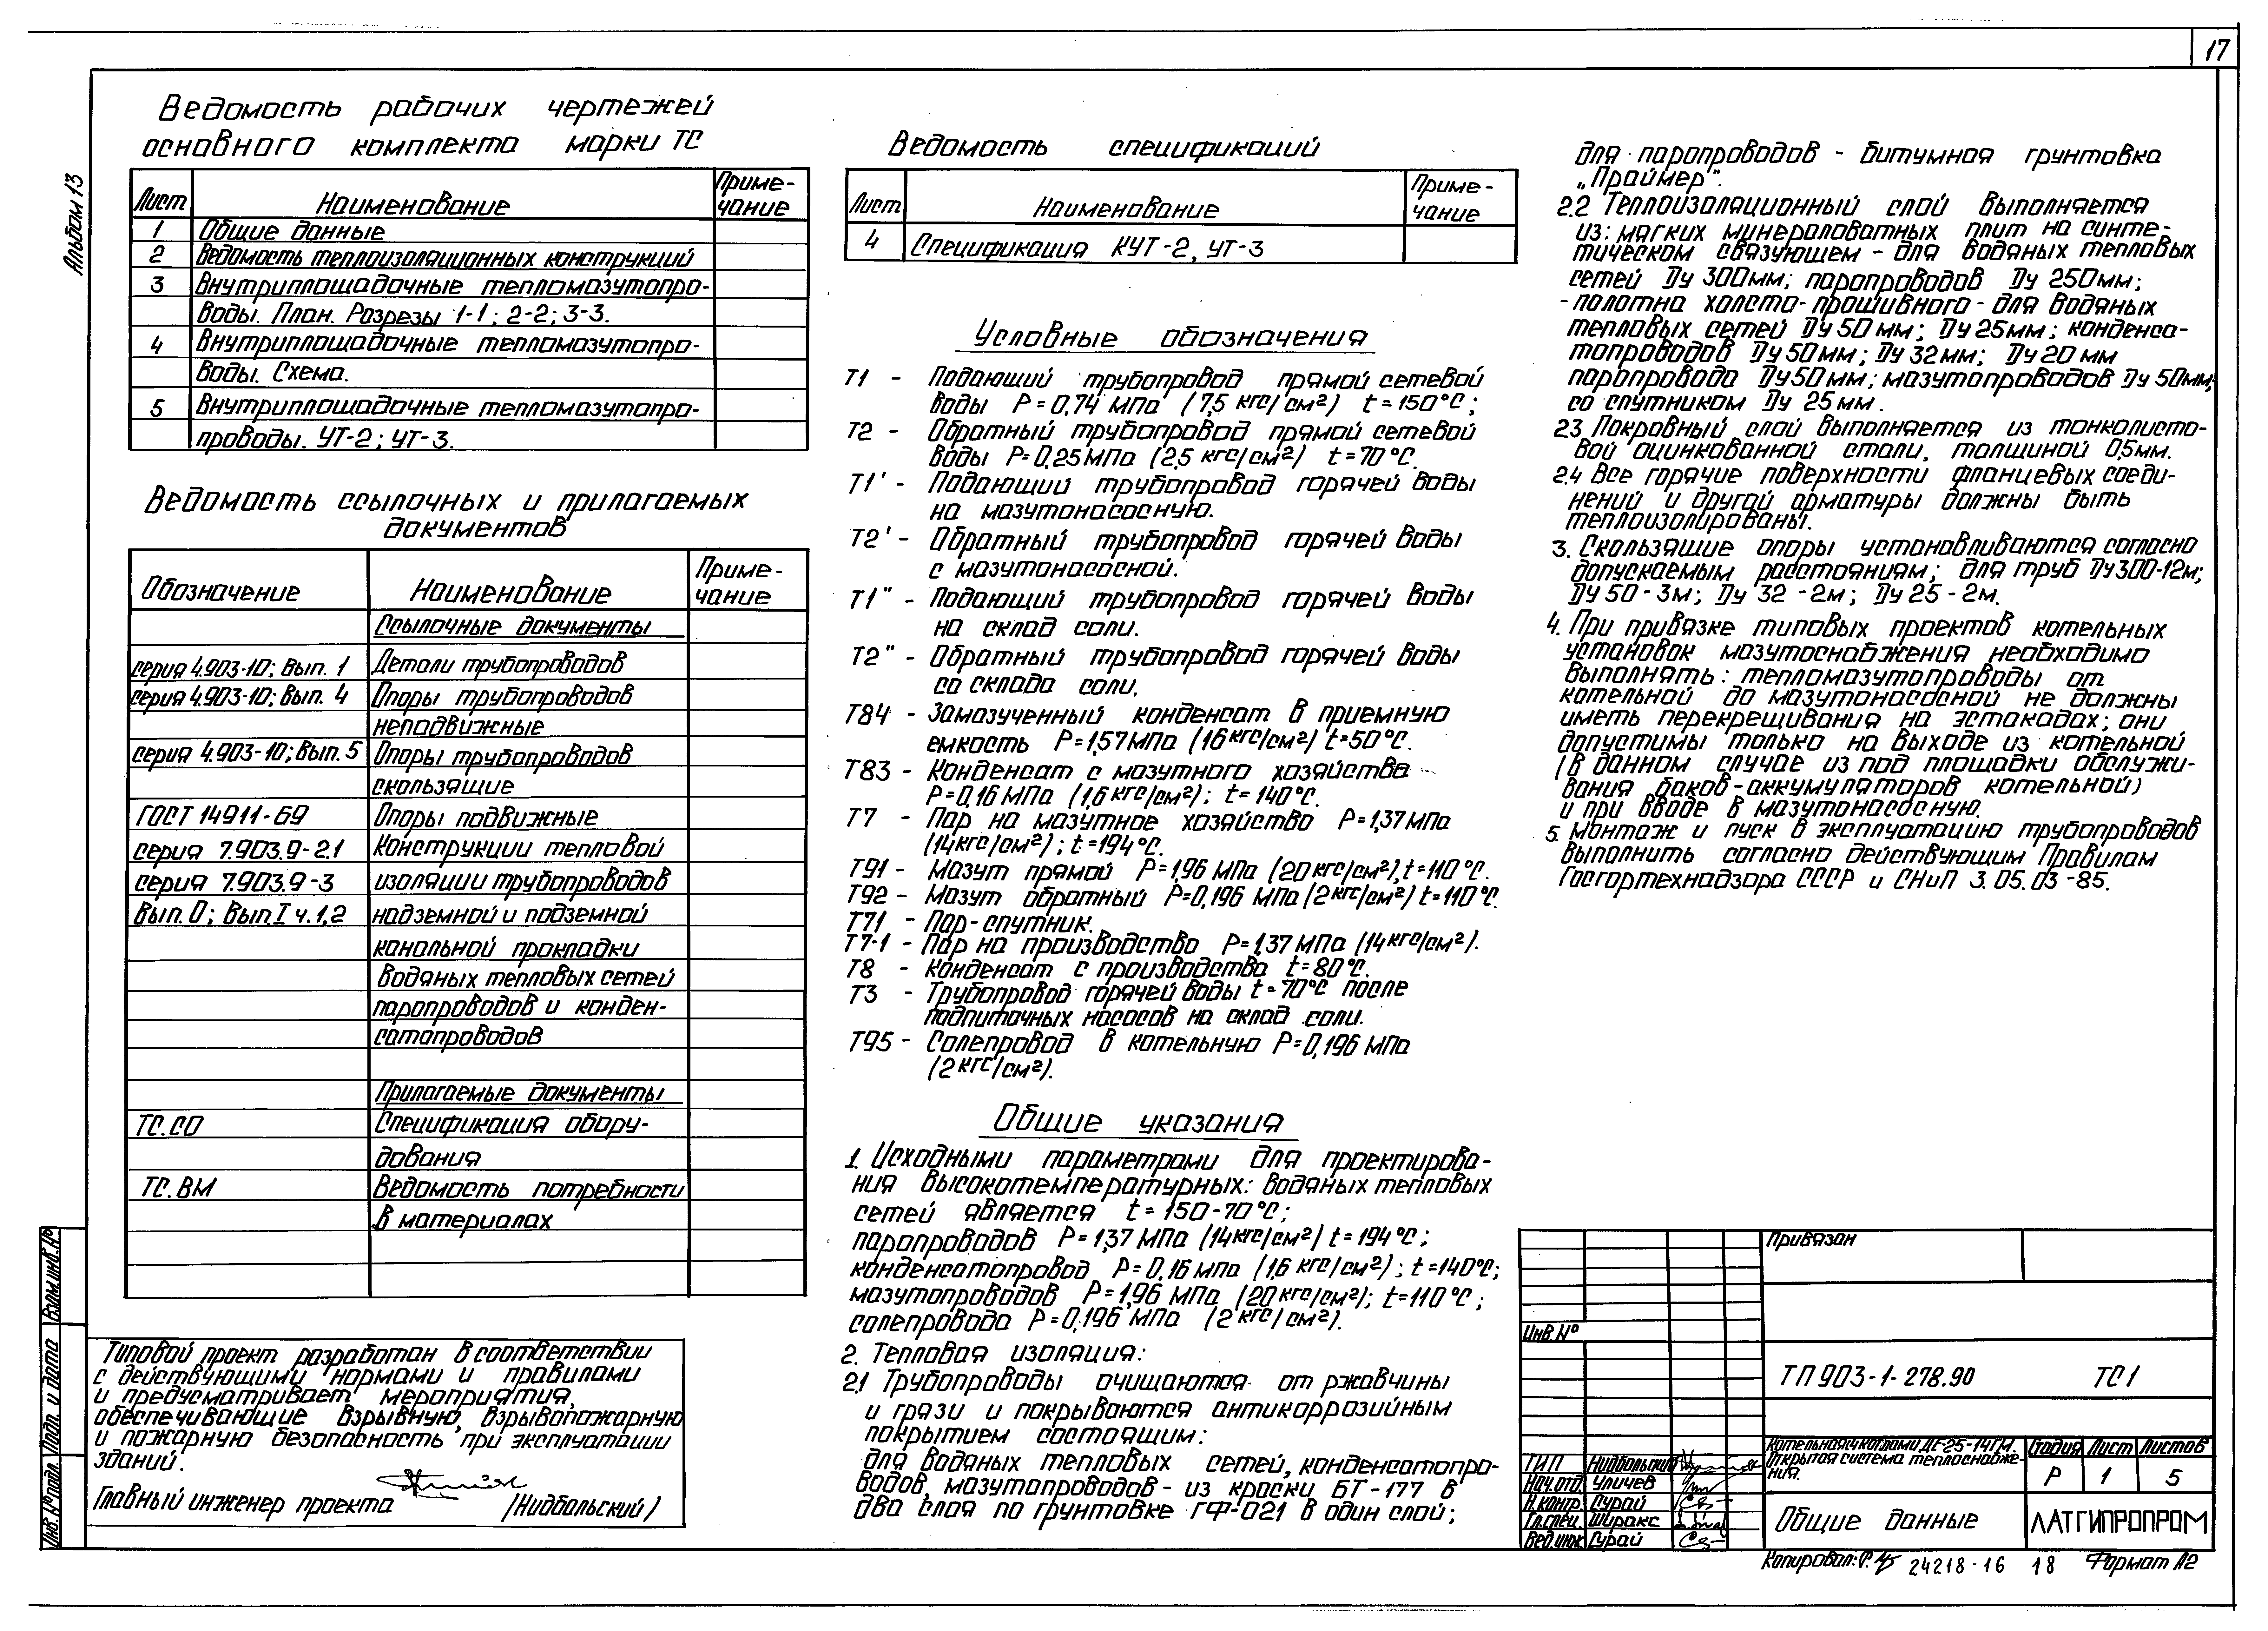 17
Альбом 13
Ведомость рабочих чертежей
основного комплекта марки ТС
Лист Наименование Приме-
чание
1 Общие данные
2 Ведомость теплоизоляционных конструкций
3 Внутриплощадочные тепломазутопро-
воды. План. Разрезы 1-1; 2-2; 3-3.
4 Внутриплощадочные тепломазутопро-
воды. Схема.
5 Внутриплощадочные тепломазутопро-
проводы. УТ-2; УТ-3.
Ведомость ссылочных и прилагаемых
документов
Обозначение Наименование Приме-
чание
Ссылочные документы
серия 4.903-10; Вып. 1 Детали трубопроводов
серия 4.903-10; Вып. 4 Опоры трубопроводов
неподвижные
серия 4.903-10; Вып. 5 Опоры трубопроводов
скользящие
ГОСТ 14911-69 Опоры подвижные
серия 7.903.9-2.1 Конструкции тепловой
серия 7.903.9-3 изоляции трубопроводов
Вып. 0; Вып. I ч. 1,2 надземной и подземной
канальной прокладки
водяных тепловых сетей
паропроводов и конден-
сатопроводов
Прилагаемые документы
ТС.СО Спецификация обору-
дования
ТС.ВМ Ведомость потребности
в материалах
Типовой проект разработан в соответствии
с действующими нормами и правилами
и предусматривает мероприятия,
обеспечивающие взрывную, взрывопожарную
и пожарную безопасность при эксплуатации
зданий.
Главный инженер проекта /Нидбальский/
Взам. инв. №
Подп. и дата
Инв. № подл.
Ведомость спецификаций
Лист Наименование Приме-
чание
4 Спецификация К УТ-2, УТ-3
Условные обозначения
Т1 - Подающий трубопровод прямой сетевой
воды Р=0,74 МПа (7,5 кгс/см²) t=150°С;
Т2 - Обратный трубопровод прямой сетевой
воды Р=0,25МПа (2,5 кгс/см²) t=70°С.
Т1' - Подающий трубопровод горячей воды
на мазутонасосную.
Т2' - Обратный трубопровод горячей воды
с мазутонасосной.
Т1" - Подающий трубопровод горячей воды
на склад соли.
Т2" - Обратный трубопровод горячей воды
со склада соли.
Т84 - Замазученный конденсат в приемную
емкость Р=1,57МПа (16 кгс/см²) t=50°С.
Т83 - Конденсат с мазутного хозяйства
Р=0,16 МПа (1,6 кгс/см²); t=140°С.
Т7 - Пар на мазутное хозяйство Р=1,37МПа
(14кгс/см²); t=194°С.
Т91 - Мазут прямой Р=1,96 МПа (20кгс/см²), t=110°С.
Т92 - Мазут обратный Р=0,196 МПа (2кгс/см²) t=110°С.
Т71 - Пар-спутник.
Т7-1 - Пар на производство Р=1,37 МПа (14кгс/см²).
Т8 - Конденсат с производства t=80°С.
Т3 - Трубопровод горячей воды t=70°С после
подпиточных насосов на склад соли.
Т95 - Солепровод в котельную Р=0,196 МПа
(2 кгс/см²).
Общие указания
1. Исходными параметрами для проектирова-
ния высокотемпературных: водяных тепловых
сетей является t=150-70°С;
паропроводов Р=1,37 МПа (14кгс/см²) t=194°С;
конденсатопровод Р=0,16 МПа (1,6 кгс/см²); t=140°С;
мазутопроводов Р=1,96 МПа (20кгс/см²); t=110°С;
солепровода Р=0,196 МПа (2 кгс/см²).
2. Тепловая изоляция:
2.1 Трубопроводы очищаются от ржавчины
и грязи и покрываются антикоррозийным
покрытием состоящим:
для водяных тепловых сетей, конденсатопро-
водов, мазутопроводов - из краски БТ-177 в
два слоя по грунтовке ГФ-021 в один слой;
для паропроводов - битумная грунтовка
„Праймер".
2.2 Теплоизоляционный слой выполняется
из: мягких минераловатных плит на синте-
тическом связующем - для водяных тепловых
сетей Ду 300мм; паропроводов Ду 250мм;
- полотна холсто-прошивного - для водяных
тепловых сетей Ду 50 мм; Ду 25мм; конденса-
топроводов Ду 50мм; Ду 32 мм; Ду 20 мм
паропровода Ду50 мм; мазутопроводов Ду 50мм,
со спутником Ду 25 мм.
2.3 Покровный слой выполняется из тонколисто-
вой оцинкованной стали, толщиной 0,5мм.
2.4 Все горячие поверхности фланцевых соеди-
нений и другой арматуры должны быть
теплоизолированы.
3. Скользящие опоры устанавливаются согласно
допускаемым расстояниям; для труб Ду300-12м;
Ду 50-3м; Ду 32-2м; Ду 25-2м.
4. При привязке типовых проектов котельных
установок мазутоснабжения необходимо
выполнять: тепломазутопроводы от
котельной до мазутонасосной не должны
иметь перекрещивания на эстакадах; они
допустимы только на выходе из котельной
(в данном случае из под площадки обслужи-
вания баков-аккумуляторов котельной)
и при вводе в мазутонасосную.
5. Монтаж и пуск в эксплуатацию трубопроводов
выполнить согласно действующим Правилам
Госгортехнадзора СССР и СНиП 3.05.03-85.
Привязан
Инв. №
ТП 903-1-278.90 ТС1
ГИП Нидбальский
Нач.отд. Уличев
Н.контр. Гурай
Гл.спец. Ширакс
Вед.инж. Гурай
Котельная с 4 котлами ДЕ-25-14ГМ.
Открытая система теплоснабже-
ния.
Стадия Лист Листов
Р 1 5
Общие данные
ЛАТГИПРОПРОМ
Копировал: 24218-16 18 Формат А2